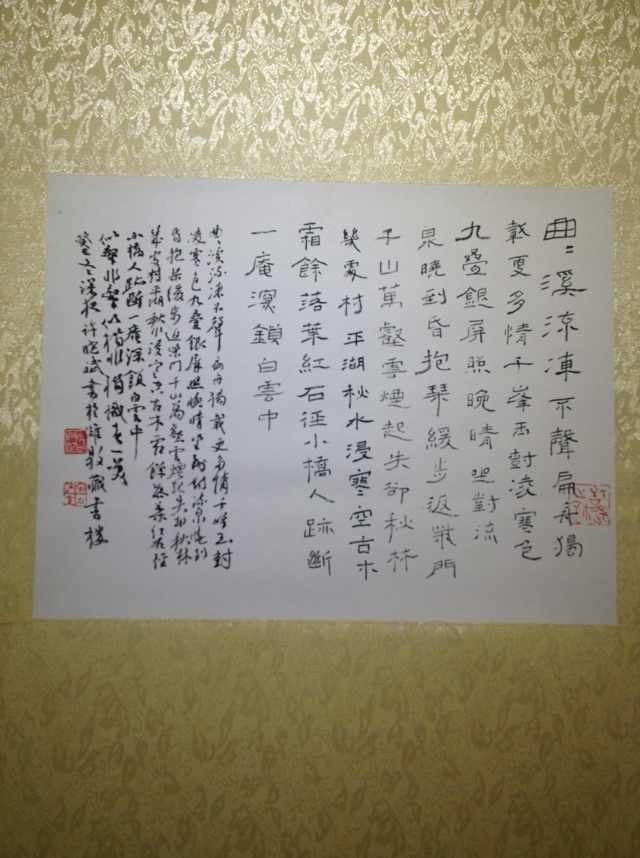 曲〻溪流凍不聲扁舟獨
載更多情千峰玉封凌寒色
九疊銀屏照晚晴坐對流
泉曉到昏抱琴緩步返柴門
千山萬壑雲煙起失卻秋林
幾處村平湖秋水浸寒空古木
霜餘落葉紅石徑小橋人跡斷
一庵深鎖白雲中
曲〻溪流凍不聲扁舟獨載更多情千峰玉封
凌寒色九疊銀屏照晚晴坐對流泉曉到
昏抱琴緩步返柴門千山萬壑雲煙起失卻秋林
幾處村平湖秋水浸寒空古木霜餘落葉紅石徑
小橋人跡斷一庵深鎖白雲中
似非似楷非楷識者一笑
許曉斌書於藏書樓